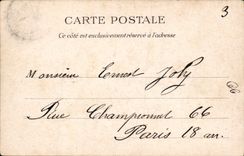 3
CARTE POSTALE
Ce côté est exclusivement réservé à l'adresse
Monsieur Ernest Joly
Rue Championnet 66
Paris 18 arr.